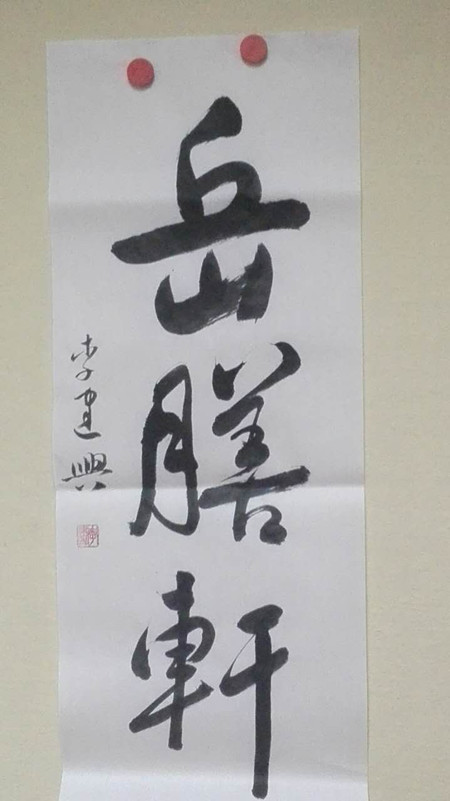 岳膳軒
李建興